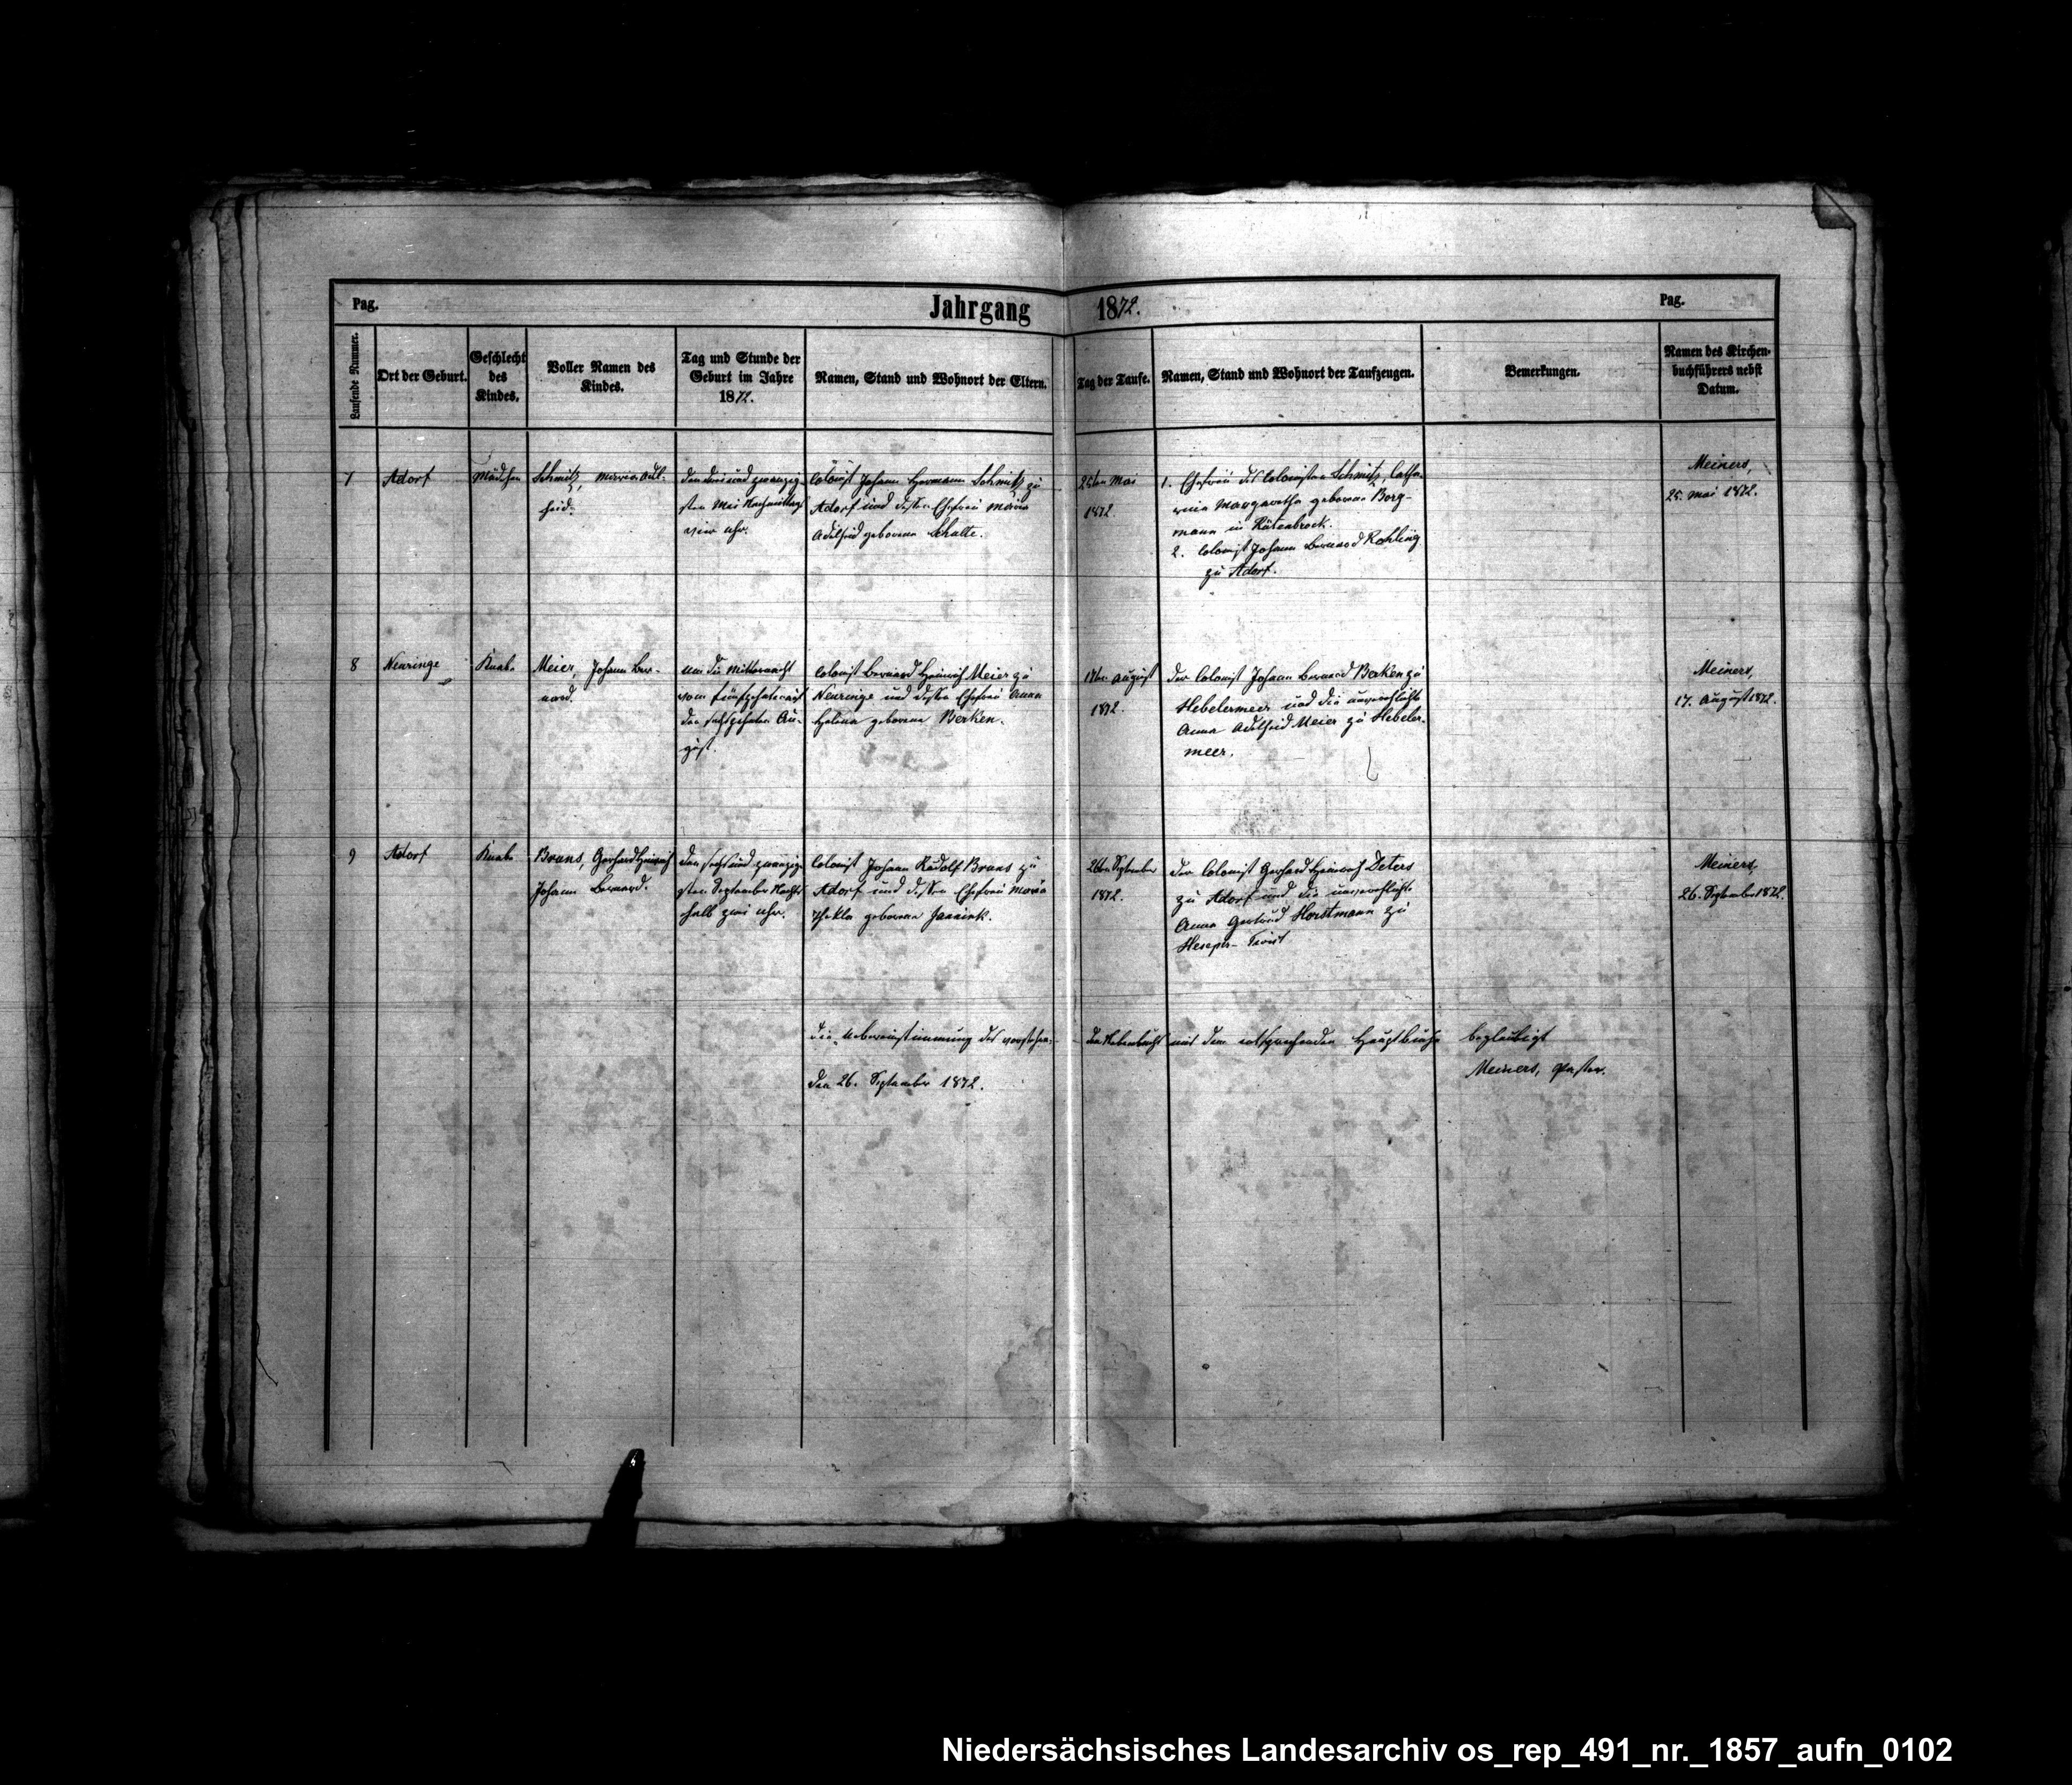 Pag.
Jahrgang 1872.
Pag.
Laufende Nummer.
Ort der Geburt.
Geschlecht
des
Kindes.
Voller Namen des
Kindes.
Tag und Stunde der
Geburt im Jahre
1872.
Namen, Stand und Wohnort der Eltern.
Tag der Taufe.
Namen, Stand und Wohnort der Taufzeugen.
Bemerkungen.
Namen des Kirchen-
buchführers nebst
Datum.
7
Adorf
Mädchen
Schmitz, Maria Adel-
heid.
den dreiundzwanzig-
sten Mai Nachmittags
vier Uhr.
Colonist Johann Hermann Schmitz zu
Adorf und dessen Ehefrau Maria
Adelheid geborene Schulte.
25ten Mai
1872
1. Ehefrau des Colonisten Schmitz, Catha-
rina Margaretha geborene Borg-
mann in Rütenbrock.
2. Colonist Johann Bernard Rohling
zu Adorf.
Meiners,
25. Mai 1872.
8
Neuringe
Knabe
Meier, Johann Ber-
nard.
um die Mitternacht
vom fünfzehnten auf
den sechszehnten Au-
gust.
Colonist Bernard Heinrich Meier zu
Neuringe und dessen Ehefrau Anna
Helena geborene Berken.
17ten August
1872.
Der Colonist Johann Bernard Berken zu
Hebelermeer und die unverehlichte
Anna Adelheid Meier zu Hebeler-
meer.
Meiners,
17. August 1872.
9
Adorf
Knabe
Bruns, Gerhard Heinrich
Johann Bernard.
den sechsundzwanzig-
sten September Nachts
halb zwei Uhr.
Colonist Johann Rudolf Bruns zu
Adorf und dessen Ehefrau Maria
Thekla geborene Jannink.
26ten September
1872.
Der Colonist Gerhard Heinrich Deters
zu Adorf und die unverehlichte
Anna Gertrud Horstmann zu
Heseper-Twist
Meiners,
26. September 1872.
Die Uebereinstimmung des vorstehen-
den Nebenbuchs mit dem entsprechenden Hauptbuche beglaubigt
den 26. September 1872.
Meiners, Pastor.
Niedersächsisches Landesarchiv os_rep_491_nr._1857_aufn_0102